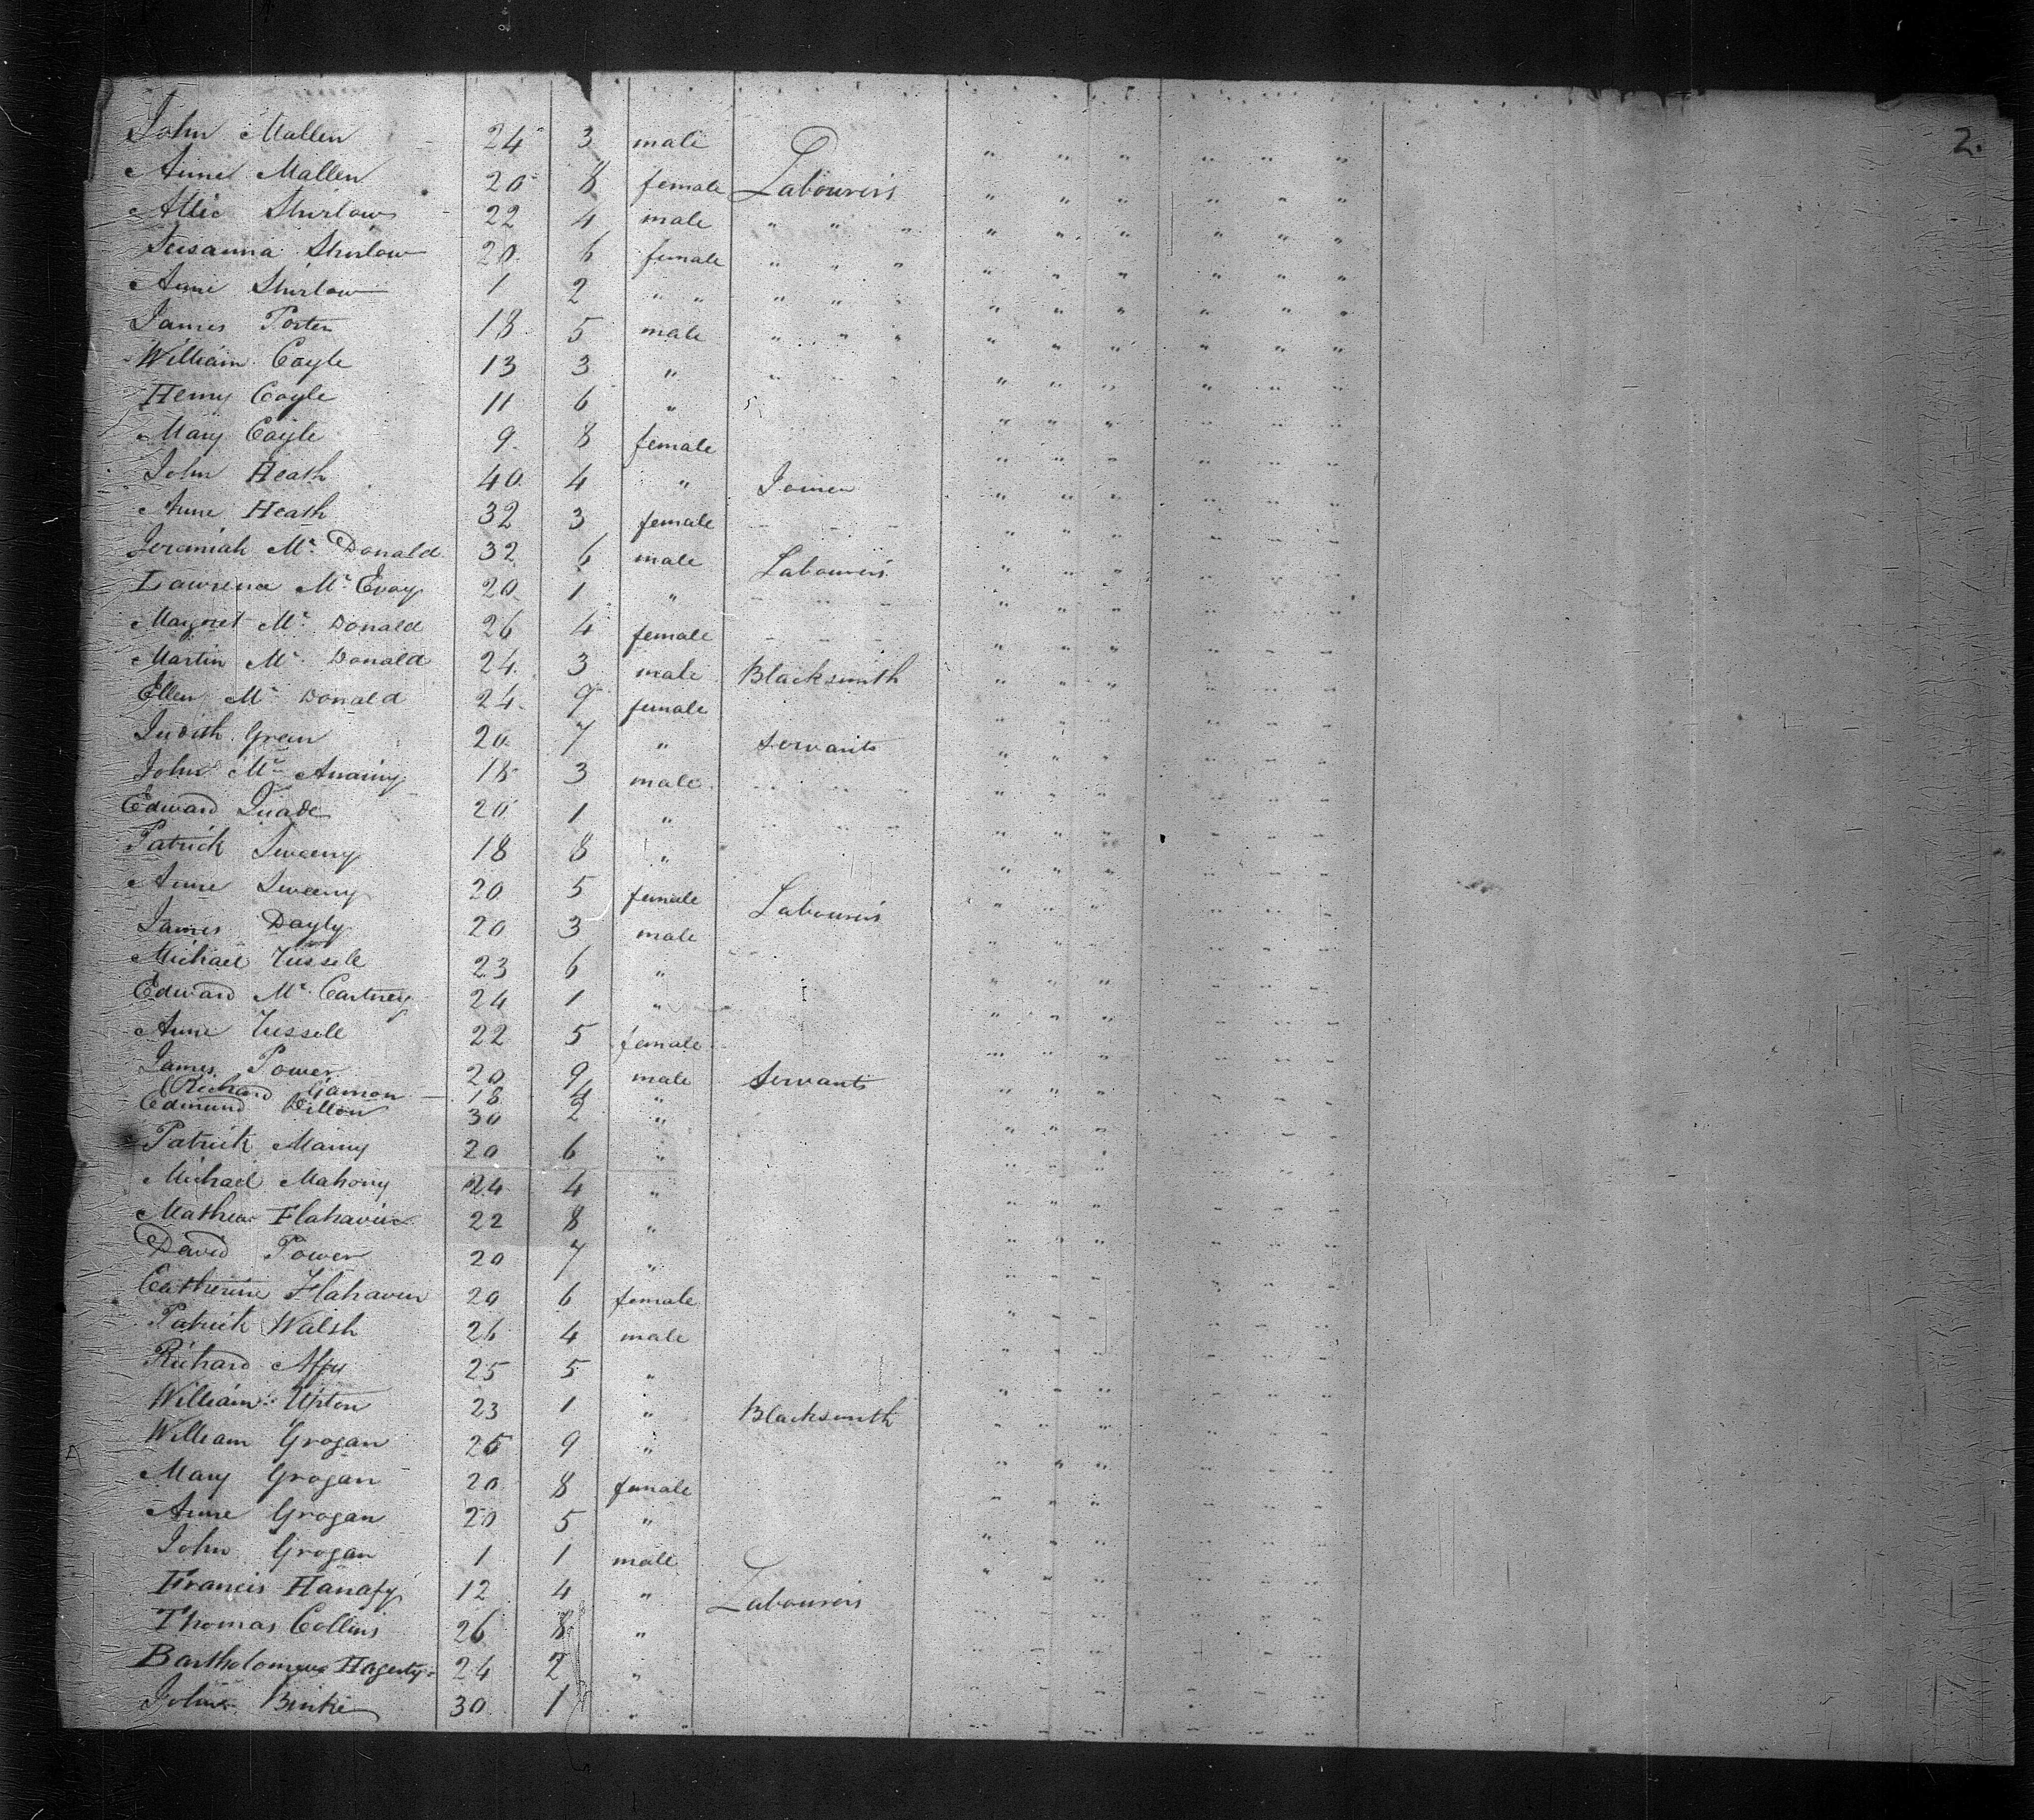 2.
John Mallen 24 3 male
Anne Mallen 20 8 female Labourers
Attic Shirlow 22 4 male " " "
Susanna Shirlow 20 6 female " " "
Anne Shirlow 1 2 " " " " "
James Porter 18 5 male " " "
William Coyle 13 3 " " " "
Henry Coyle 11 6 "
Mary Coyle 9 8 female
John Heath 40 4 " Joiner
Anne Heath 32 3 female
Jeremiah Mc Donald 32 6 male Labourers
Lawrence Mc Evoy 20 1 "
Margret Mc Donald 26 4 female
Martin Mc Donald 24 3 male Blacksmith
Ellen Mc Donald 24 9 female
Judith Green 20 7 " Servants
John Mc 18 3 male
Edward Quade 20 1 "
Patrick Sweeny 18 8 "
Anne Sweeny 20 5 female Labourers
James Dayly 20 3 male
Michael Tussell 23 6 "
Edward Mc Cartney 24 1 "
Anne Tussell 22 5 female
James Power 20 9 male Servants
Richard Gamon 18 4 "
Edmund Dillon 30 2 "
Patrick Mainy 20 6 "
Michael Mahony 24 4 "
Mathew Flahaven 22 8 "
David Power 20 7 "
Catherine Flahaven 20 6 female
Patrick Walsh 26 4 male
Richard 25 5 "
William Upton 23 1 " Blacksmith
William Grogan 25 9 "
Mary Grogan 20 8 female
Anne Grogan 20 5 "
John Grogan 1 1 male
Francis Hanafy 12 4 " Labourers
Thomas Collins 26 8 "
Bartholomew Hagerty 24 2 "
John Binke 30 1 " "